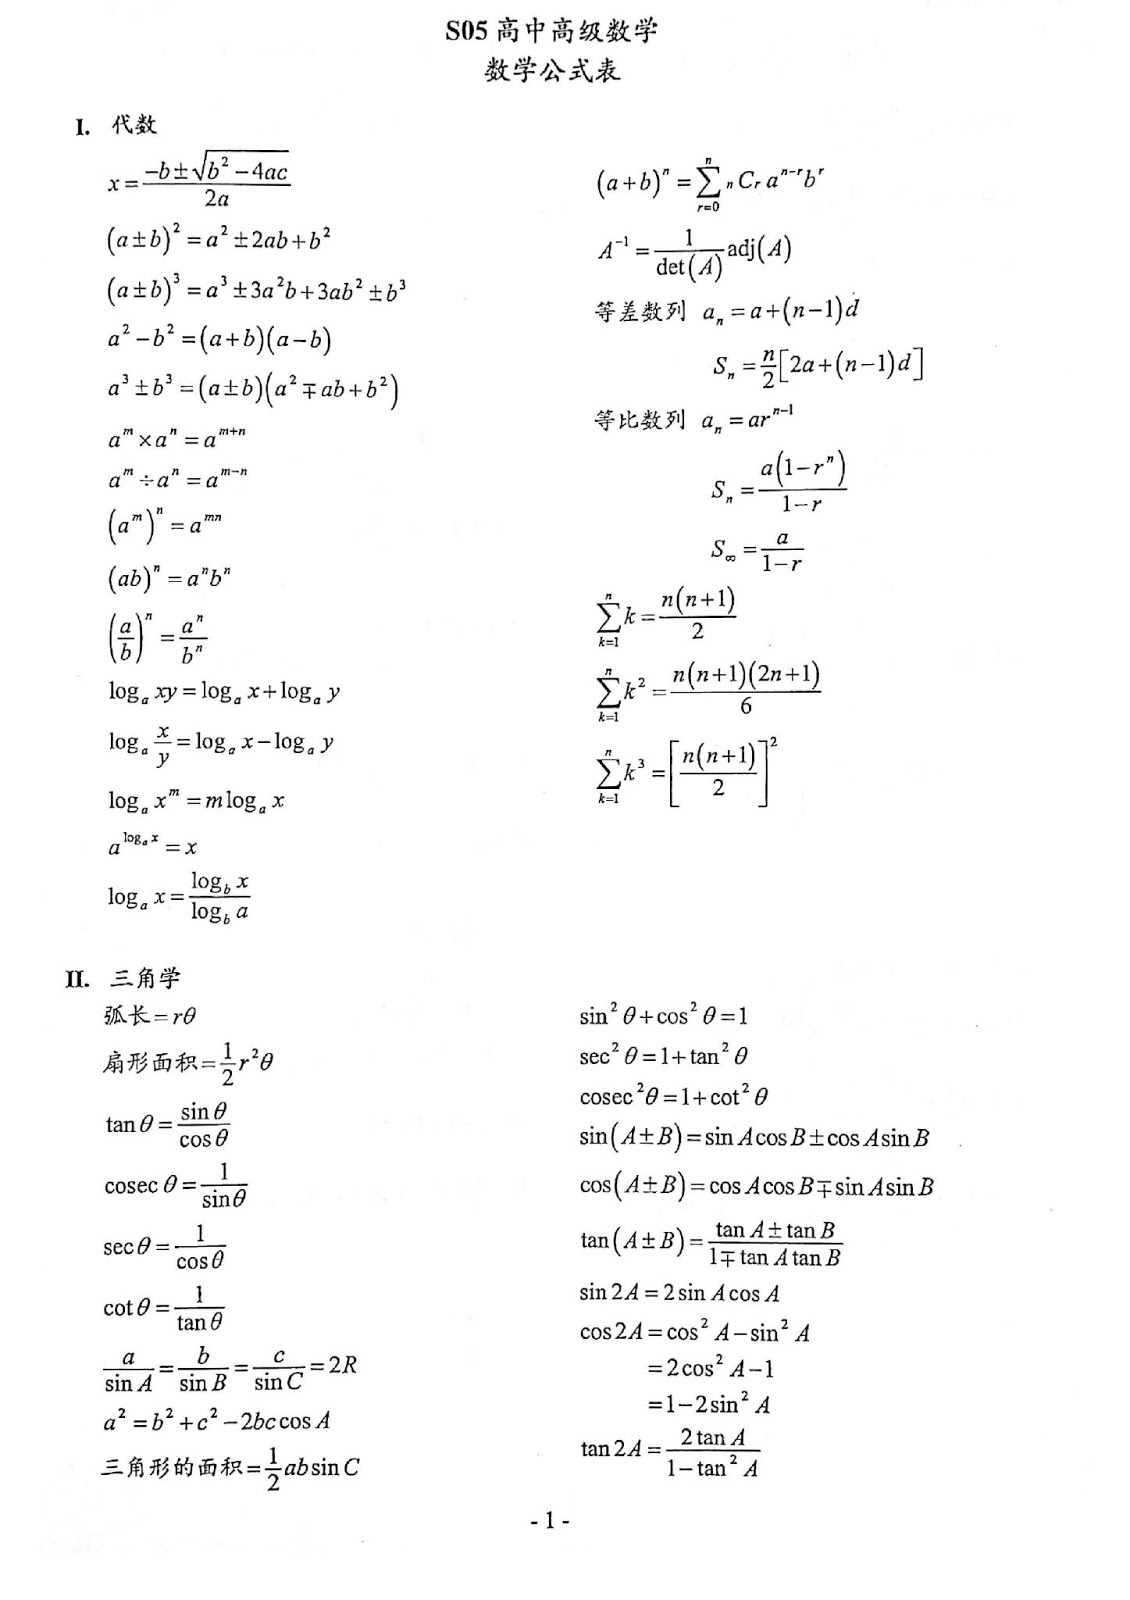 S05 高中高级数学
数学公式表
I. 代数
x = \frac{-b \pm \sqrt{b^2 - 4ac}}{2a}
(a ± b)^2 = a^2 ± 2ab + b^2
(a ± b)^3 = a^3 ± 3a^2b + 3ab^2 ± b^3
a^2 − b^2 = (a + b)(a − b)
a^3 ± b^3 = (a ± b)(a^2 ∓ ab + b^2)
a^m × a^n = a^{m+n}
a^m ÷ a^n = a^{m−n}
(a^m)^n = a^{mn}
(ab)^n = a^n b^n
\left(\frac{a}{b}\right)^n = \frac{a^n}{b^n}
log_a xy = log_a x + log_a y
log_a \frac{x}{y} = log_a x − log_a y
log_a x^m = m log_a x
a^{log_a x} = x
log_a x = \frac{log_b x}{log_b a}
(a + b)^n = \sum_{r=0}^{n} {}_nC_r a^{n−r} b^r
A^{−1} = \frac{1}{det(A)} adj(A)
等差数列 a_n = a + (n−1)d
S_n = \frac{n}{2}[2a + (n−1)d]
等比数列 a_n = ar^{n−1}
S_n = \frac{a(1−r^n)}{1−r}
S_∞ = \frac{a}{1−r}
\sum_{k=1}^{n} k = \frac{n(n+1)}{2}
\sum_{k=1}^{n} k^2 = \frac{n(n+1)(2n+1)}{6}
\sum_{k=1}^{n} k^3 = \left[\frac{n(n+1)}{2}\right]^2
II. 三角学
弧长 = rθ
扇形面积 = \frac{1}{2} r^2 θ
tan θ = \frac{sin θ}{cos θ}
cosec θ = \frac{1}{sin θ}
sec θ = \frac{1}{cos θ}
cot θ = \frac{1}{tan θ}
\frac{a}{sin A} = \frac{b}{sin B} = \frac{c}{sin C} = 2R
a^2 = b^2 + c^2 − 2bc cos A
三角形的面积 = \frac{1}{2} ab sin C
sin^2 θ + cos^2 θ = 1
sec^2 θ = 1 + tan^2 θ
cosec^2 θ = 1 + cot^2 θ
sin(A ± B) = sin A cos B ± cos A sin B
cos(A ± B) = cos A cos B ∓ sin A sin B
tan(A ± B) = \frac{tan A ± tan B}{1 ∓ tan A tan B}
sin 2A = 2 sin A cos A
cos 2A = cos^2 A − sin^2 A
= 2 cos^2 A − 1
= 1 − 2 sin^2 A
tan 2A = \frac{2 tan A}{1 − tan^2 A}
- 1 -